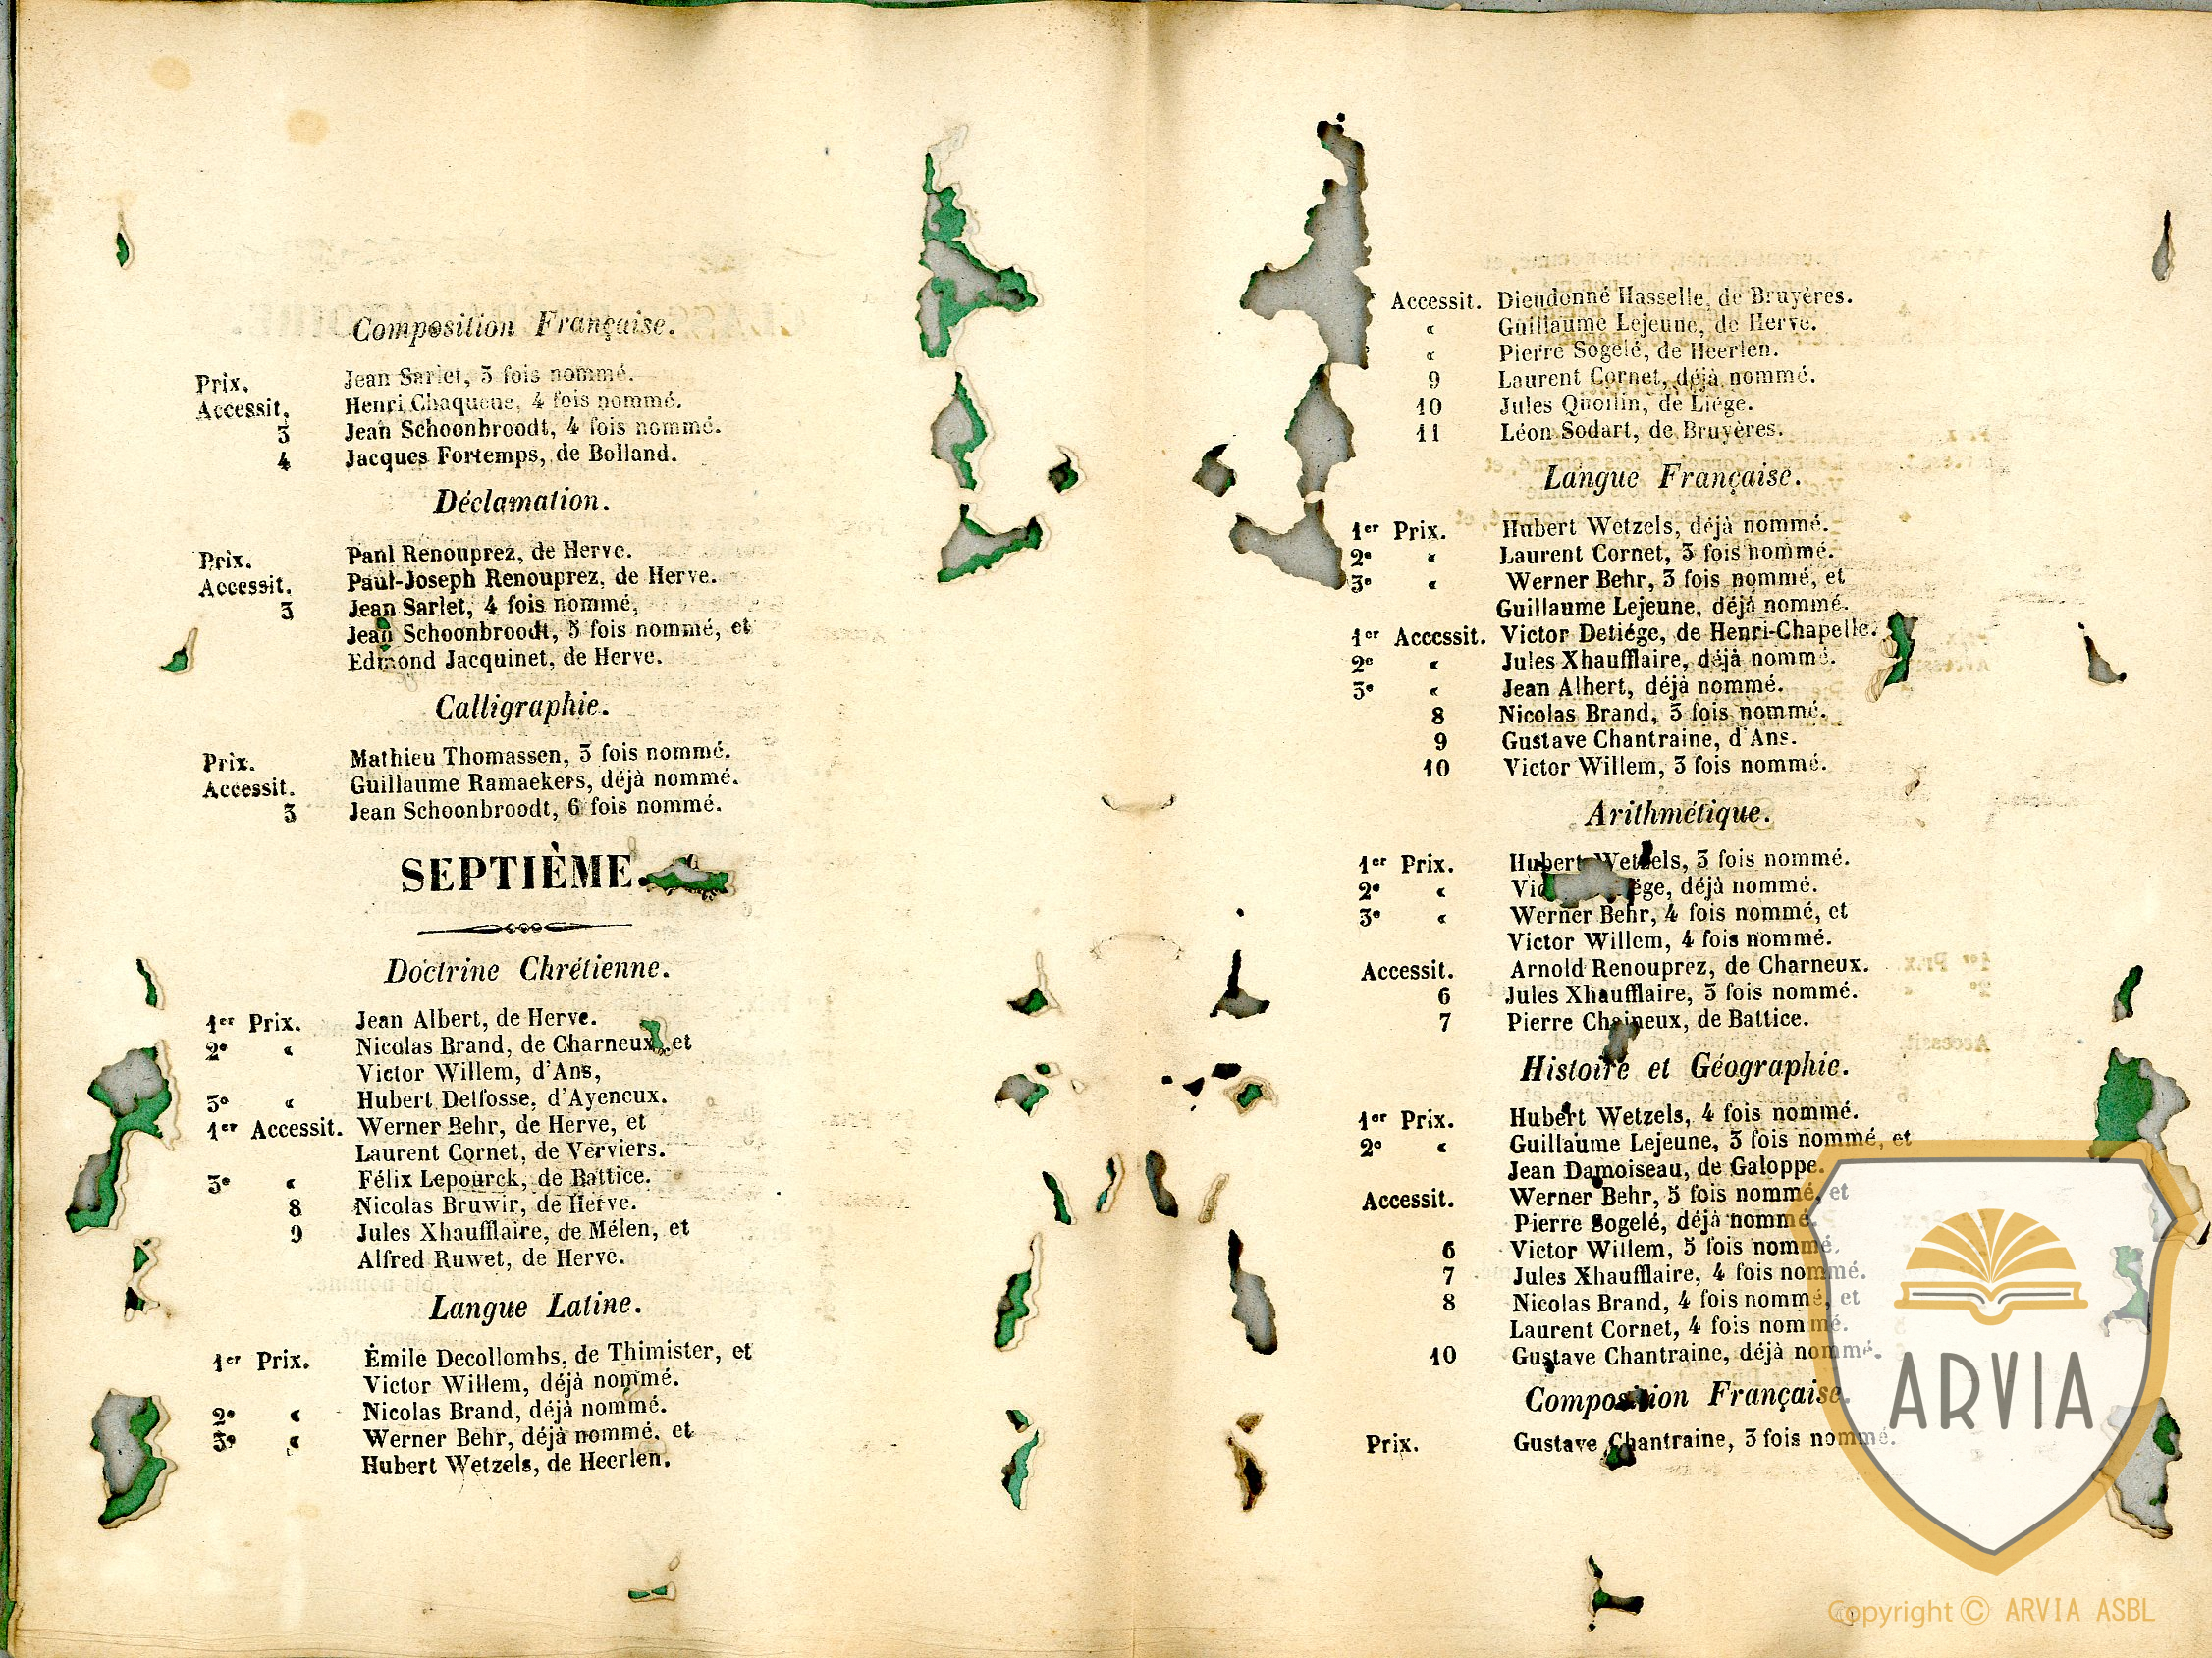 Composition Française.
Prix. Jean Sarlet, 3 fois nommé.
Accessit. Henri Chaqueue, 4 fois nommé.
3 Jean Schoonbroodt, 4 fois nommé.
4 Jacques Fortemps, de Bolland.
Déclamation.
Prix. Paul Renouprez, de Herve.
Accessit. Paul-Joseph Renouprez, de Herve.
3 Jean Sarlet, 4 fois nommé,
Jean Schoonbroodt, 5 fois nommé, et
Edmond Jacquinet, de Herve.
Calligraphie.
Prix. Mathieu Thomassen, 3 fois nommé.
Accessit. Guillaume Ramaekers, déjà nommé.
3 Jean Schoonbroodt, 6 fois nommé.
SEPTIÈME.
Doctrine Chrétienne.
1er Prix. Jean Albert, de Herve.
2e « Nicolas Brand, de Charneux, et
Victor Willem, d'Ans,
3e « Hubert Delfosse, d'Ayeneux.
1er Accessit. Werner Behr, de Herve, et
Laurent Cornet, de Verviers.
3e « Félix Lepourck, de Battice.
8 Nicolas Bruwir, de Herve.
9 Jules Xhaufflaire, de Mélen, et
Alfred Ruwet, de Herve.
Langue Latine.
1er Prix. Émile Decollombs, de Thimister, et
Victor Willem, déjà nommé.
2e « Nicolas Brand, déjà nommé.
3e « Werner Behr, déjà nommé, et
Hubert Wetzels, de Heerlen.
Accessit. Dieudonné Hasselle, de Bruyères.
« Guillaume Lejeune, de Herve.
« Pierre Sogelé, de Heerlen.
9 Laurent Cornet, déjà nommé.
10 Jules Quoilin, de Liége.
11 Léon Sodart, de Bruyères.
Langue Française.
1er Prix. Hubert Wetzels, déjà nommé.
2e « Laurent Cornet, 3 fois nommé.
3e « Werner Behr, 3 fois nommé, et
Guillaume Lejeune, déjà nommé.
1er Accessit. Victor Detiége, de Henri-Chapelle.
2e « Jules Xhaufflaire, déjà nommé.
3e « Jean Albert, déjà nommé.
8 Nicolas Brand, 3 fois nommé.
9 Gustave Chantraine, d'Ans.
10 Victor Willem, 3 fois nommé.
Arithmétique.
1er Prix. Hubert Wetzels, 3 fois nommé.
2e « déjà nommé.
3e « Werner Behr, 4 fois nommé, et
Victor Willem, 4 fois nommé.
Accessit. Arnold Renouprez, de Charneux.
6 Jules Xhaufflaire, 3 fois nommé.
7 Pierre Chaineux, de Battice.
Histoire et Géographie.
1er Prix. Hubert Wetzels, 4 fois nommé.
2e « Guillaume Lejeune, 3 fois nommé, et
Jean Damoiseau, de Galoppe.
Accessit. Werner Behr, 5 fois nommé, et
Pierre Sogelé, déjà nommé.
6 Victor Willem, 5 fois nommé.
7 Jules Xhaufflaire, 4 fois nommé.
8 Nicolas Brand, 4 fois nommé, et
Laurent Cornet, 4 fois nommé.
10 Gustave Chantraine, déjà nommé.
Composition Française.
Prix. Gustave Chantraine, 3 fois nommé.
ARVIA
Copyright © ARVIA ASBL